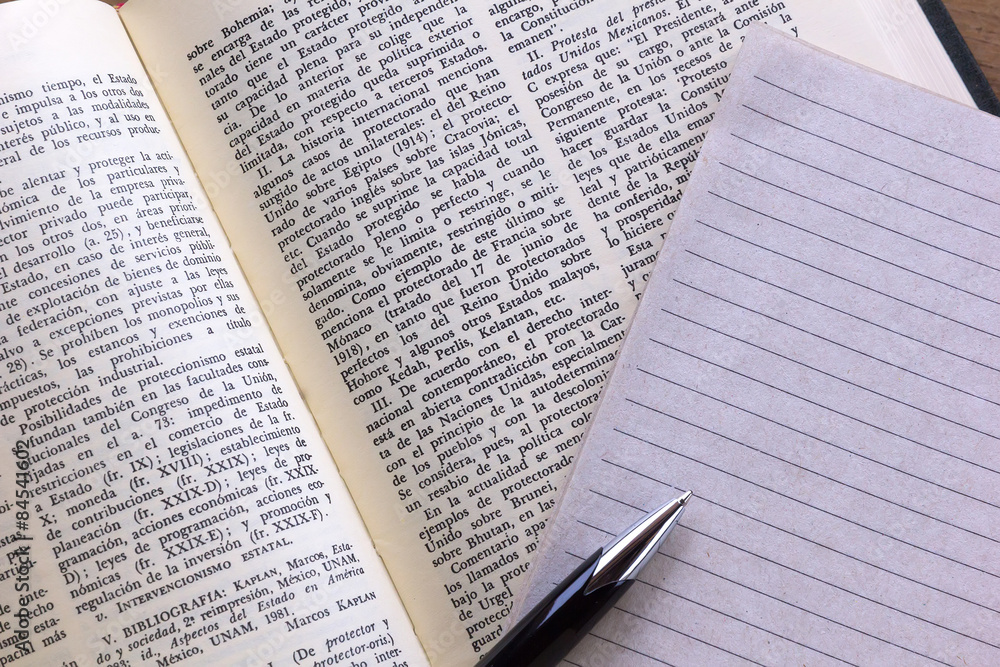 nismo tiempo, el Estado
e impulsa a los otros dos
sujetos a las modalidades
nterés público, y al uso en
eral de los recursos produc-
be alentar y proteger la acti-
nómica de los particulares y
lvimiento de la empresa priva-
ector privado puede participar,
los otros dos, en áreas priori-
el desarrollo (a. 25), y beneficiarse
Estado, en caso de interés general,
de concesiones de servicios públi-
de explotación de bienes de dominio
federación, con ajuste a las leyes
alvo a excepciones previstas por ellas
28). Se prohíben los monopolios y sus
rácticas, los estancos y exenciones de
impuestos, las prohibiciones a título
e protección industrial.
Posibilidades de proteccionismo estatal
fundan también en las facultades cons-
itucionales del Congreso de la Unión,
fijadas en el a. 73: impedimento de
restricciones en el comercio de Estado
a Estado (fr. IX); legislaciones de la fr.
X; moneda (fr. XVIII); establecimiento
de contribuciones (fr. XXIX); leyes de
planeación (fr. XXIX-D); leyes de pro-
gramación, acciones económicas (fr. XXIX-
D); leyes de programación, acciones eco-
nómicas (fr. XXIX-E); y promoción y
regulación de la inversión (fr. XXIX-F).
v. INTERVENCIONISMO ESTATAL.
V. BIBLIOGRAFÍA: KAPLAN, Marcos, Esta-
do y sociedad, 2ª reimpresión, México, UNAM,
id., Aspectos del Estado en América
México, UNAM, 1981.
Marcos KAPLAN
I. (De protector y
protector-oris.)
derecho inter-
sobre Bohemia;
se encarga de las
nales del Estado protegido,
torado tiene un carácter provi
que el Estado protegido,
tu capacidad plena para su independen
cia. De lo anterior se colige que
capacidad en materia de política exterior
del Estado protegido queda suprimida o
limitada, con respecto a terceros Estados.
II. La historia internacional menciona
algunos casos de protectorado que han
surgido de actos unilaterales: el del Reino
Unido sobre Egipto (1914); el protecto-
rado de varios países sobre Cracovia; el
protectorado inglés sobre las islas Jónicas,
etc. Cuando se suprime la capacidad total
del Estado protegido se habla de un
protectorado pleno o perfecto y cuando
solamente se le limita o restringe, se le
denomina, obviamente, restringido o miti-
gado. Como ejemplo de este último se
menciona el protectorado de Francia sobre
Mónaco (tratado del 17 de junio de
1918), en tanto que fueron protectorados
perfectos los del Reino Unido sobre
Hohore y algunos otros Estados malayos,
como Kedah, Perlis, Kelantan, etc.
III. De acuerdo con el derecho inter-
nacional contemporáneo, el protectorado
está en abierta contradicción con la Car
ta de las Naciones Unidas, especialmen
con el principio de la autodetermina
de los pueblos y con la descoloni
Se considera, pues, al protectora
un resabio de la política coloni
En la actualidad se menci
ejemplos de protectorado
Unido sobre Brunei,
sobre Bhutan, en las
Comentario apa
los llamados
bajo la prote
de Urgel
protec
guard
encargo,
la Constitución
emanen".
II. Protesta del presid
tados Unidos Mexicanos. El
C expresa que: "El Presidente, al
posesión de su cargo, prestará ante
Congreso de la Unión o ante la Comisión
Permanente, en los recesos de
siguiente protesta: "Protesto
hacer guardar la Constitu
de los Estados Unidos
leyes que de ella emar
leal y patrióticamente
dente de la Repú
ha conferido, mi
y prosperidad,
lo hiciere o
Esta
jurame
84544602
Adobe Stock